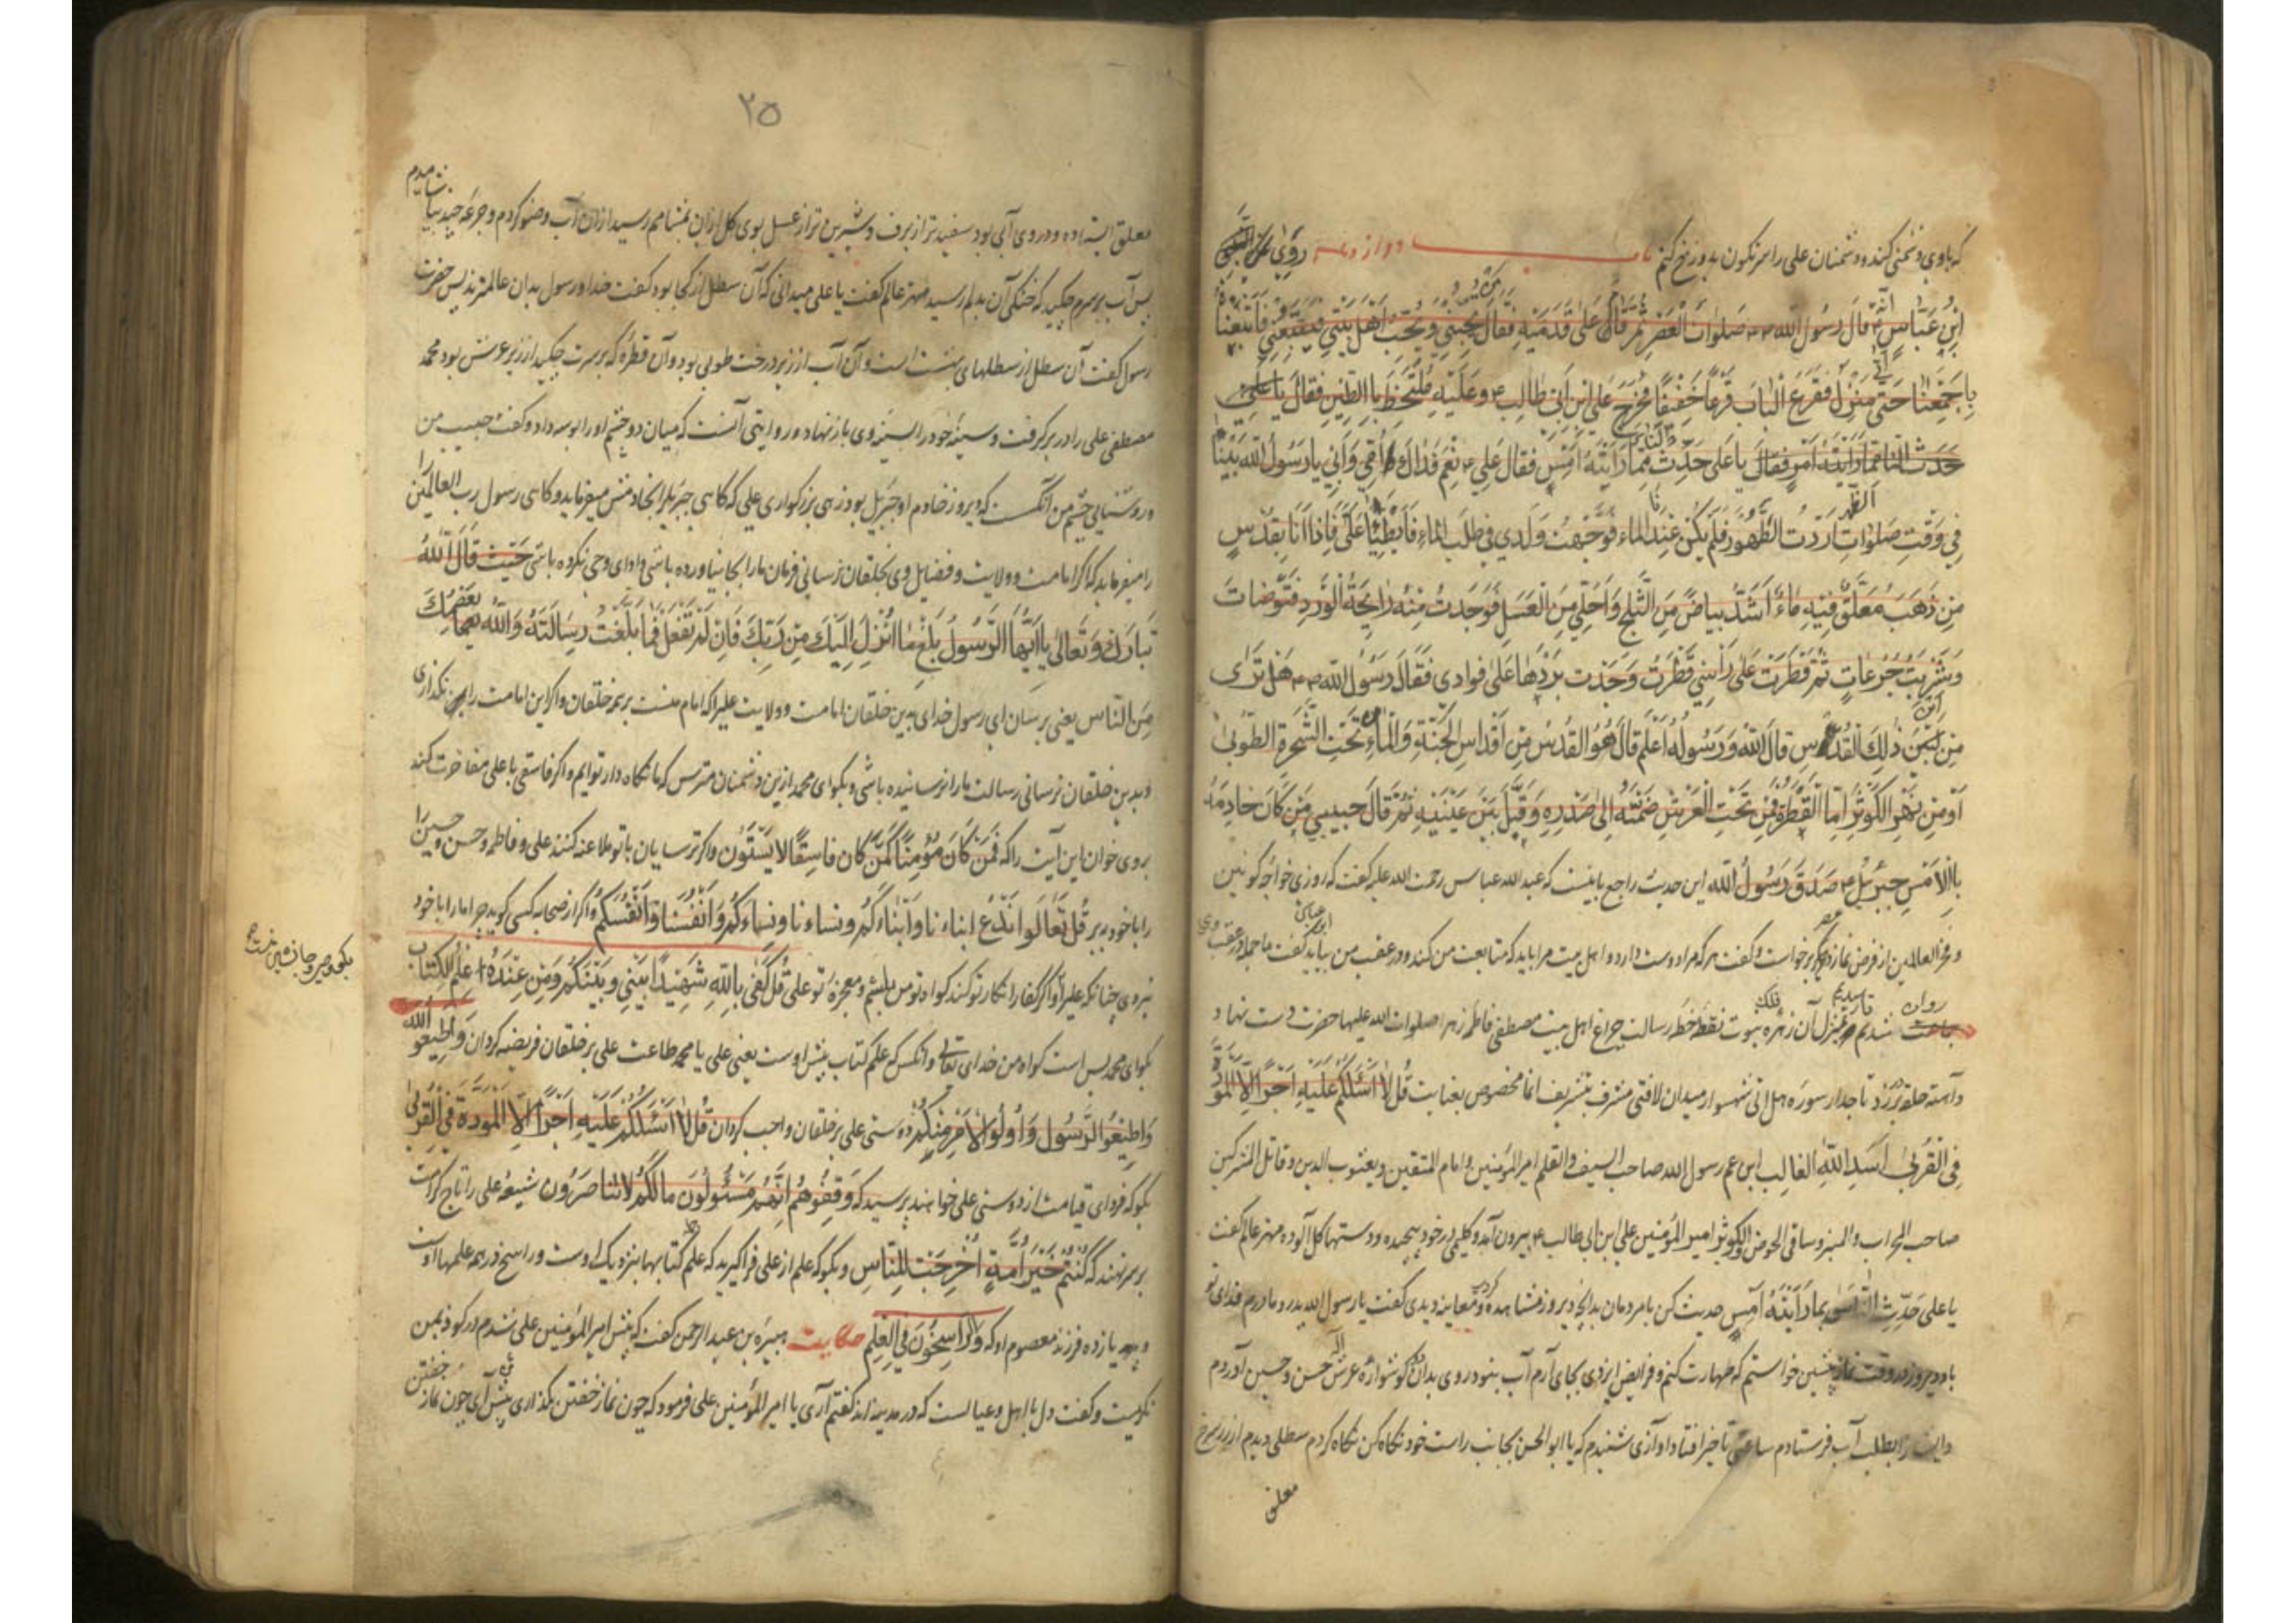 که با وی دشمنی کند و دشمنان علی را سرنگون بدوزخ کنم باب دوازدهم رُوِیَ عَنِ
ابْنِ عَبَّاسٍ اَنَّهُ قَالَ رَسُولُ الله صَلَواتَ الْعَصْرِ ثُمَّ قَالَ عَلَی قَدَمَیْهِ فَقَالَ مَنْ یُحِبُّنِی وَیُحِبُّ اَهْلَ بَیْتِی فَیَتَّبِعُنِی فَاتَّبَعْنَا
بِاَجْمَعِنَا حَتَّی اَتَی مَنْزِلَ فَقَرَعَ الْبَابَ قَرْعًا خَفِیفًا فَخَرَجَ عَلِی ابْنِ اَبِی طَالِب وَعَلَیْهِ بِالطِّینِ فَقَالَ یَا عَلِی
حَدِّث النَّاسَ فَقَالَ یَا عَلِی حَدِّث بِمَا رَاَیْتَهُ اَمْسِ فَقَالَ عَلِی نَعَمْ فَدَاكَ اُمِّی وَاَبِی یَا رَسُولَ الله بَیْنَا
فِی وَقْتِ صَلَواتِ الظُّهْرِ اَرَدْتُ الطَّهُورَ فَلَمْ یَکُنْ عِنْدَنَا الْمَاء فَوَجَّهْتُ وَلَدِی فِی طَلَبِ الْمَاءِ فَاَبْطَئَا عَلَیَّ فَاِذَا اَنَا بِقُدْسٍ
مِنْ ذَهَبٍ مُعَلَّقٌ فِیْهِ مَاءٌ اَشَدُّ بَیَاضً مِنَ الثَّلْجِ وَاَحْلَی مِنَ الْعَسَلِ فَوَجَدْتُ مِنْهُ رَایِحَةُ الْوَرْدِ فَتَوَضَّاتَ
وَشَرِبْتُ جُرُعَاتٍ ثُمَّ قَطَرَتْ عَلَی رَاْسِی قَطْرَتُ وَجَدْتُ بَرْدَهَا عَلَی فُوَادِی فَقَالَ رَسُولُ الله هَلْ تَرَی
مِنْ اَیْنَ ذَلِكَ الْقُدْسِ قَالَ اللهُ وَرَسُولُهُ اَعْلَمُ قَالَ هُوَ الْقُدْسُ مِنْ اَقْدَاسِ الْجَنَّةِ وَالْمَاءُ مِنْ تَحْتِ الشَّجَرَةِ الطُّوبَی
اَوْ مِنْ نَهْرِ الْکَوْثَرِ اَمَّا الْقَطْرَةُ فَمِنْ تَحْتِ الْعَرْشِ ضَمَّتَهُ اِلَی صَدْرِهِ وَقَبَّلَ بَیْنَ عَیْنَیْهِ ثُمَّ قَالَ حَبِیبِی مَنْ کَانَ خَادِمَهُ
بِالْاَمْسِ جِبْرَئِیل صَدَقَ رَسُولُ الله این حدیث راجع بانیست که عبد الله عباس رحمت الله علیه گفت که روزی خواجه کونین
و فخر العالمین از فرض نماز عصر برخواست و گفت هر که مرا دوست دارد و اهل بیت مرا باید که متابعت من کند و در عقب من بیاید ابن عباس گفت ما جمله در عقب وی
روان شدیم تا رسیدیم بمنزل آن زهره فلک نبوت نقطهٔ خط رسالت چراغ اهل بیت مصطفی فاطمهٔ زهرا صلوات الله علیها حضرت دست نهاد
و آهسته حلقه بزد تاجدار سورهٔ هل اتی شهسوار میدان لافتی مشرف بتشریف انما مخصوص بعنایت قُلْ لَا اَسْئَلُکُمْ عَلَیْهِ اَجْرًا اِلَّا الْمَوَدَّةَ
فِی الْقُرْبَی اَسَدِ اللهِ الْغَالِبِ ابن عم رسول الله صاحب السیف والقلم امیر المؤمنین و امام المتقین و یعسوب الدین و قاتل المشرکین
صاحب المحراب والمنبر و ساقی الحوض والکوثر امیر المؤمنین علی ابن ابی طالب بیرون آمد و کلیمی در خود پیچیده و دستها کل آلوده مهتر عالم گفت
یا علی حَدِّثِ النَّاسَ بِمَا رَاَیْتَهُ اَمْسِ حدیث کن با مردمان بدانچه دیروز مشاهده کردی و معاینه دیدی گفت یا رسول الله پدر و مادرم فدای تو
باد دیروز در وقت نماز پیشین خواستم که طهارت کنم و فرایض ایزدی بجای آرم آب نبود در وی بدان دو کوشوارهٔ عرش اله حسن و حسین آوردم
و ایشان را بطلب آب فرستادم ساعتی تاخیر افتاد آوازی شنیدم که یا ابو الحسن بجانب راست خود نگاه کن نگاه کردم سطلی دیدم از زر سرخ
معلق
۲۵
معلق ایستاده و در وی آبی بود سفیدتر از برف و شیرین تر از عسل بوی کل از آن بمشامم رسید از آن آب وضو کردم و جرعهٔ چند بیاشامیدم
پس آب بر سرم چکید که خنکی آن بدلم رسید مهتر عالم گفت یا علی میدانی که آن سطل از کجا بود گفت خدا و رسول بدان عالمترند پس حضرت
رسول گفت آن سطل از سطلهای بهشت است و آن آب از زیر درخت طوبی بود و آن قطرهٔ که بر سرت چکید از زیر عرش بود محمد
مصطفی علی را در بر گرفت و سینهٔ خود را بسینهٔ وی باز نهاد و روایتی آنست که میان دو چشم او را بوسه داد و گفت حبیب من
و روشنایی چشم من آنکست که دیروز خادم او جبرئیل بود زهی بزرگواری علی که گاهی جبرئیل را بخادمیش میفرماید و گاهی رسول رب العالمین را
میفرماید که اگر امامت و ولایت و فضایل وی بخلقان نرسانی فرمان ما را بجا نیاورده باشی و ادای وحی نکرده باشی حَیْثُ قَالَ اللهُ
تَبَارَكَ وَتَعَالَی یَا اَیُّهَا الرَّسُولُ بَلِّغْ مَا اُنْزِلَ اِلَیْكَ مِنْ رَبِّكَ فَاِنْ لَمْ تَفْعَلْ فَمَا بَلَّغْتَ رِسَالَتَهُ وَاللهُ یَعْصِمُكَ
مِنَ النَّاس یعنی برسان ای رسول خدای بدین خلقان امامت و ولایت علی را که امام منست بر همه خلقان و اگر این امامت را نگذاری
و بدین خلقان نرسانی رسالت ما را نرسانیده باشی و بگو ای محمد ازین دشمنان مترس که ما نگاه دار توایم و اگر فاسقی با علی مفاخرت کند
بر وی خوان این آیت را که فَمَنْ کَانَ مُؤْمِنًا کَمَنْ کَانَ فَاسِقًا لَا یَسْتَوُن و اگر ترسایان با تو ملاعنه کنند علی و فاطمه و حسن و حسین را
را با خود ببر قُلْ تَعَالَوا نَدْعُ ابناء نا وَاَبْنَاءَکُمْ و نساء نا و نساءَکُمْ وَاَنْفُسَنَا وَاَنْفُسَکُمْ و اگر از صحابه کسی گوید چرا ما را با خود
نبردی چنانکه علی را و اگر کفار انکار تو کنند گواه تو من باشم و معجزهٔ تو علی قُلْ کَفَی بِاللهِ شَهِیدًا بَیْنِی وَبَیْنَکُمْ وَمَنْ عِنْدَهُ عِلْمُ الْکِتَاب
بگو ای محمد بس است گواه من خدای تعالی و آنکس که علم کتاب پیش اوست یعنی علی یا محمد طاعت علی بر خلقان فریضه گردان وَاَطِیعُو الله
وَاَطِیعُوا الرَّسُول وَاُولُوا الْاَمْرِ مِنْکُمْ دوستی علی بر خلقان واجب گردان قُلْ لَا اَسْئَلُکُمْ عَلَیْهِ اَجْرًا اِلَّا الْمَوَدَّةَ فِی الْقُرْبَی
بگو که فردای قیامت از دوستی علی خواهند پرسید که وَقِفُوهُمْ اِنَّهُمْ مَسْئُولُونَ مَالَکُمْ لَا تَنَاصَرُون شیعهٔ علی را تاج کرامت
بر سر نهند که کُنْتُمْ خَیْرَ اُمَّةٍ اُخْرِجَتْ لِلنَّاسِ و بگو که علم از علی فرا گیرید که علم کتابها بنزدیک اوست و راسخ در همه علمها اوست
و یازده فرزند معصوم او که وَالرَّاسِخُونَ فِی الْعِلْمِ حکایت هبیره بن عبد الرحمن گفت که پیش امیر المؤمنین علی شدم در کوفه بمن
نگریست و گفت دل با اهل و عیالست که در مدینه اند گفتم آری یا امیر المؤمنین علی فرمود که چون نماز خفتن بگذاری پیش من آی چون نماز خفتن